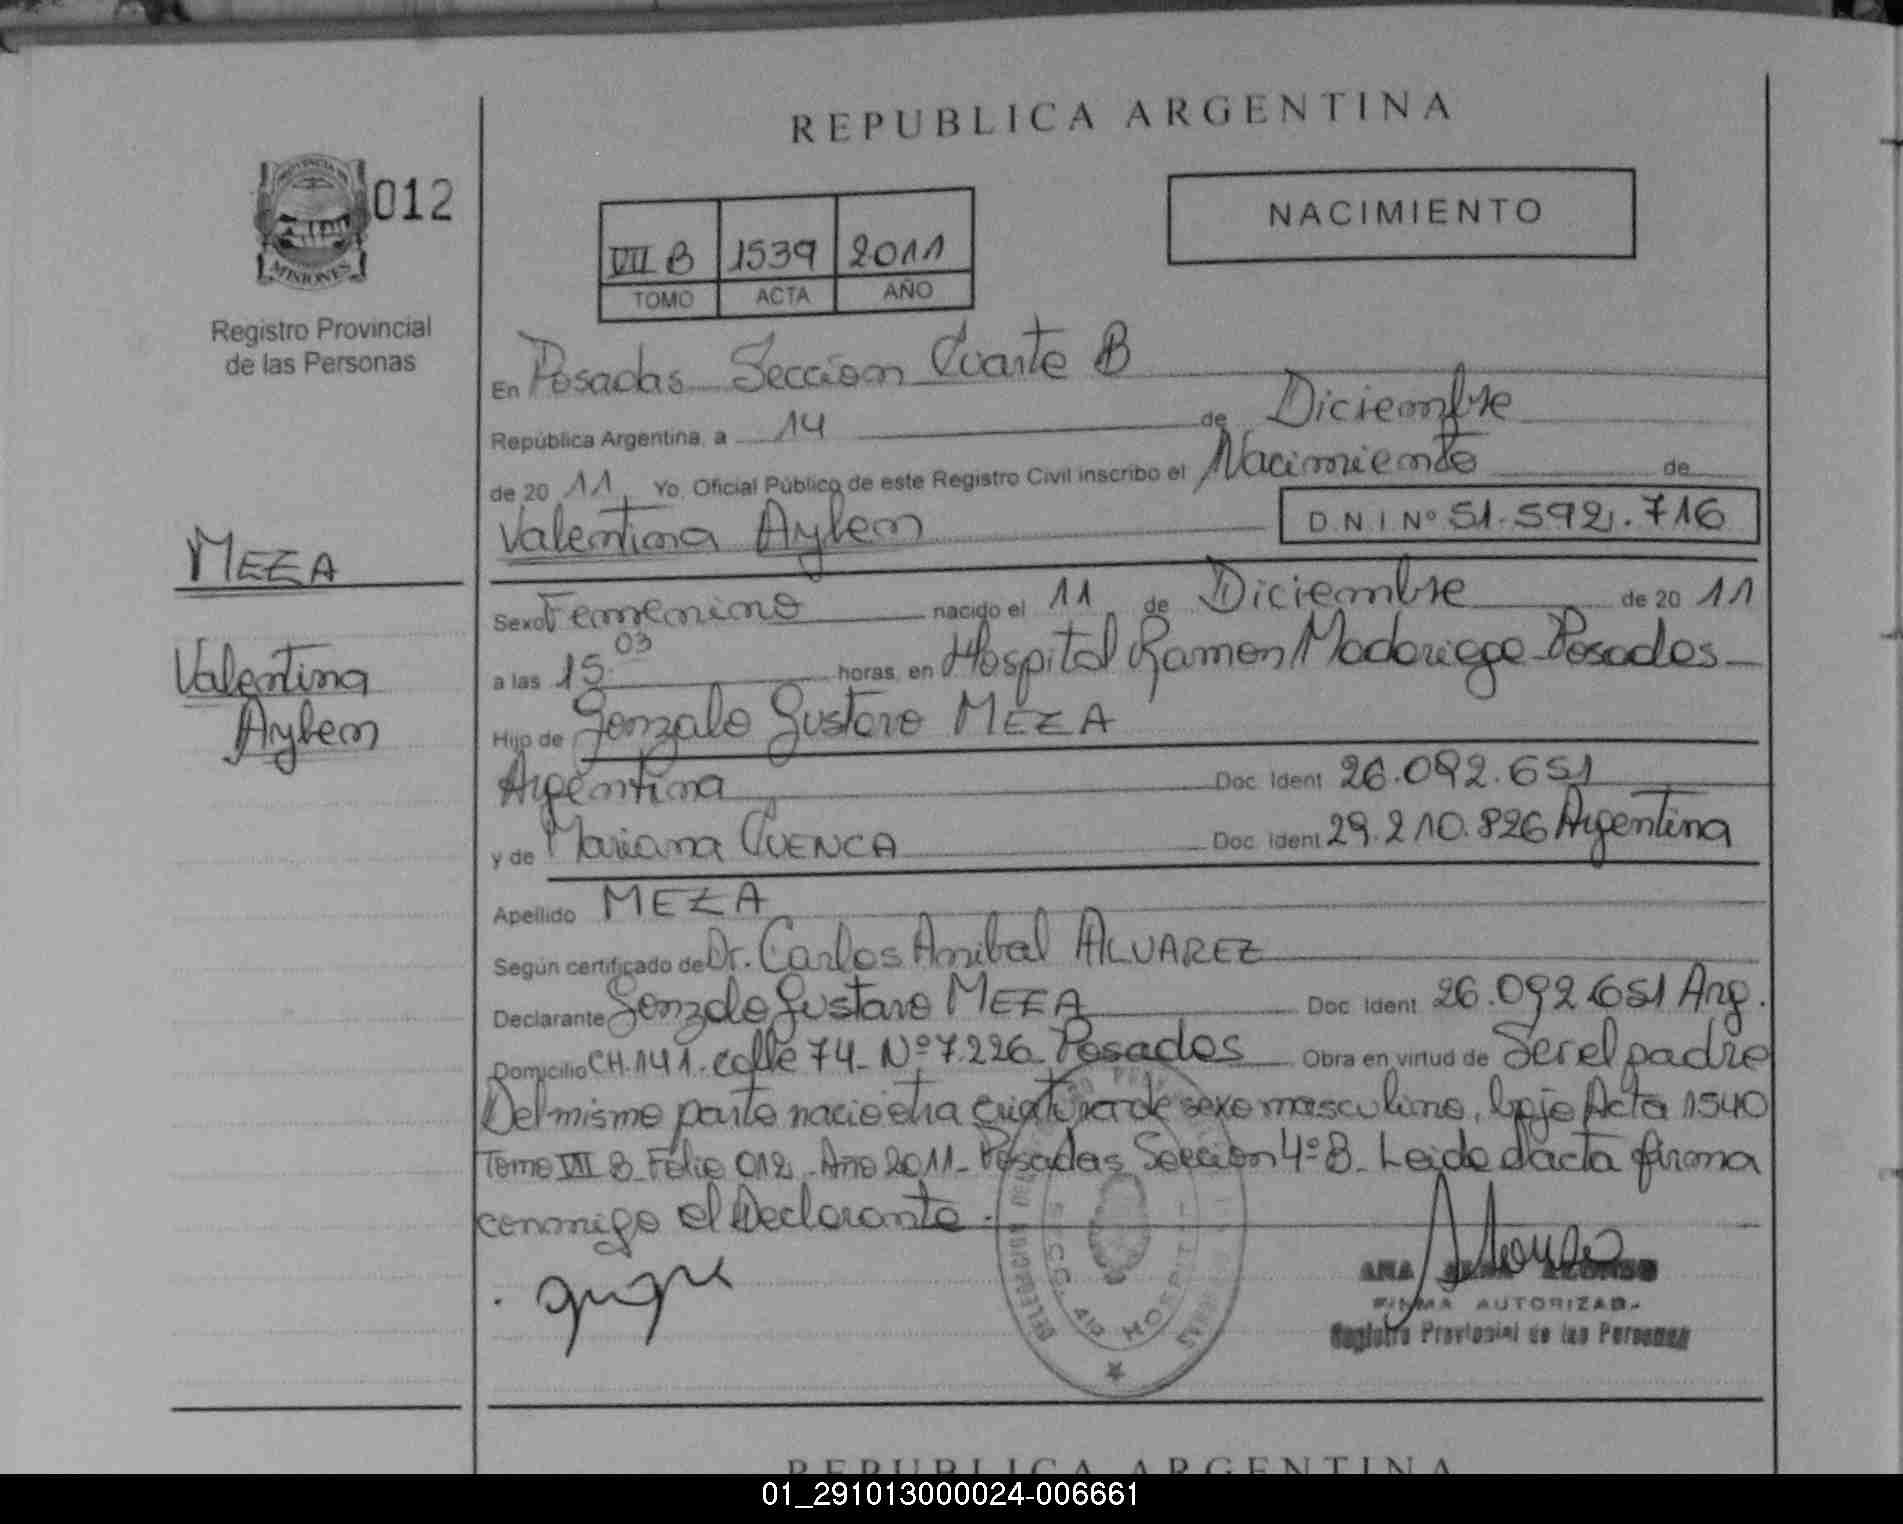 REPUBLICA ARGENTINA
PROVINCIA DE
MISIONES
012
Registro Provincial
de las Personas
NACIMIENTO
VII B 1539 2011
TOMO ACTA AÑO
En Posadas Seccion Cuarta B
República Argentina, a 14 de Diciembre
de 20 11 Yo, Oficial Público de este Registro Civil inscribo el Nacimiento de
Valentina Aylen D.N.I Nº 51.592.716
MEZA
Valentina
Aylen
Sexo Femenino nacido el 11 de Diciembre de 20 11
a las 15.03 horas, en Hospital Ramon Madariaga Posadas
Hijo de Gonzalo Gustavo MEZA
Argentina Doc. Ident 26.092.651
y de Mariana CUENCA Doc. Ident 29.210.826 Argentina
Apellido MEZA
Según certificado de Dr. Carlos Anibal ALVAREZ
Declarante Gonzalo Gustavo MEZA Doc Ident 26.092.651 Arg.
Domicilio CH.141. calle 74 - Nº 7.226 Posadas Obra en virtud de Ser el padre
Del mismo parto nacio otra criatura de sexo masculino, bajo Acta 1540
Tomo VII B - Folio 012 - Año 2011 - Posadas Seccion 4º B - Leida el acta firma
conmigo el Declarante.
SECC. 4TA HOSPIT
ANA ALONSO
FIRMA AUTORIZAD
Registro Provincial de las Personas
REPUBLICA ARGENTINA
01_291013000024-006661